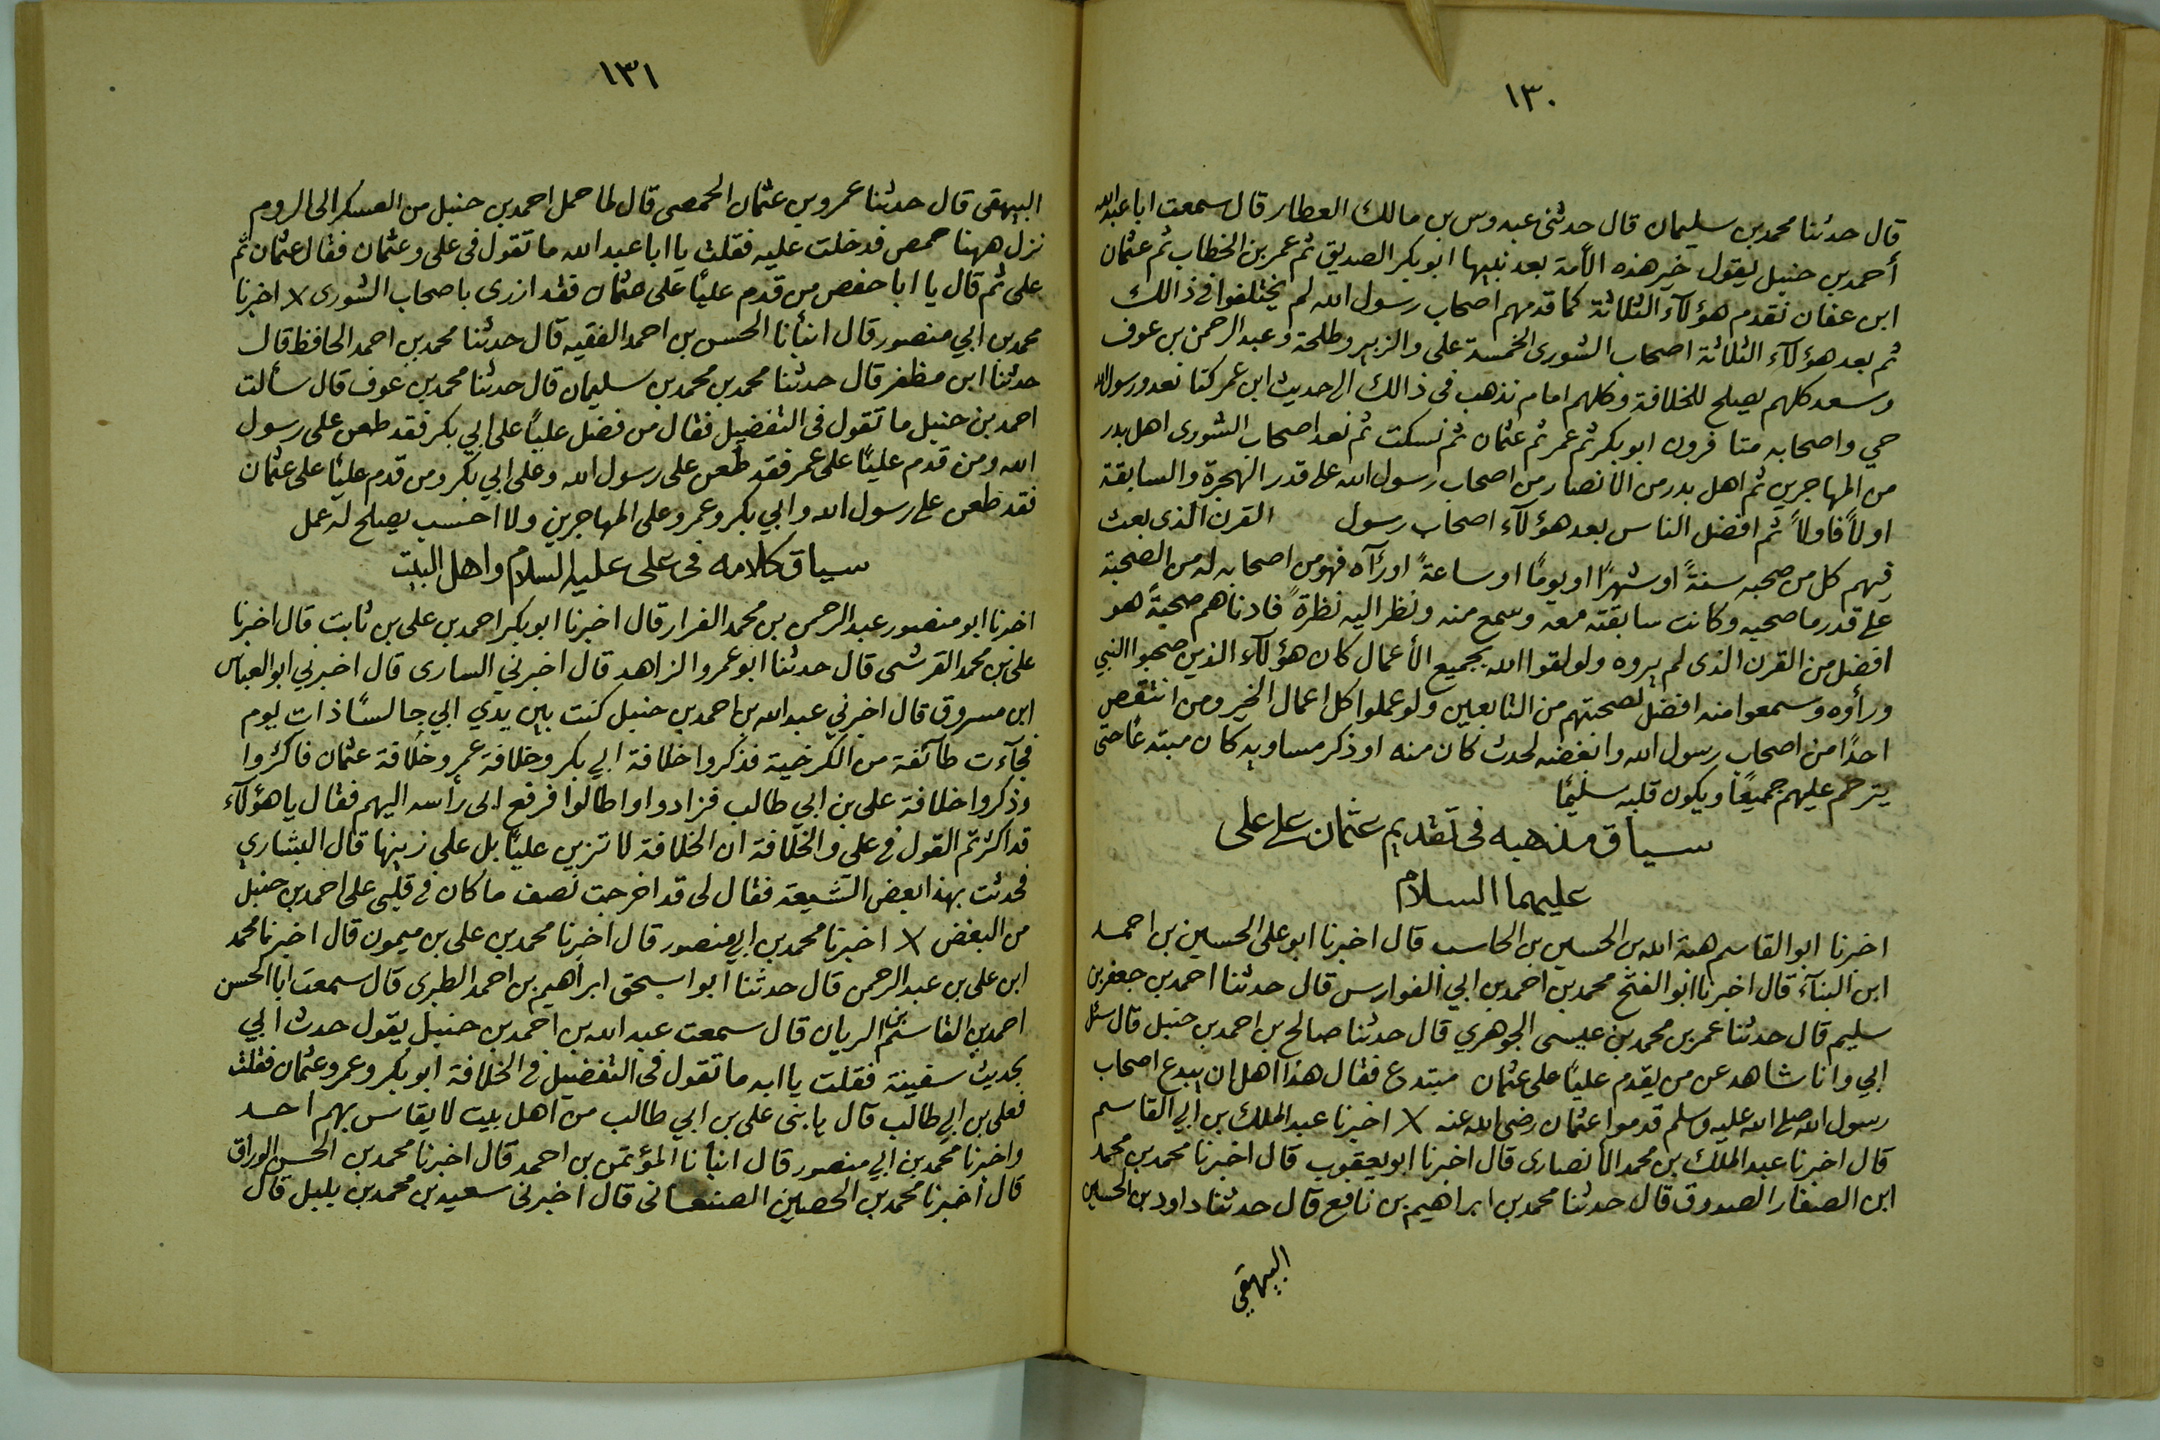 ١٣٠
قال حدثنا محمد بن سليمان قال حدثنى عبدوس بن مالك العطار قال سمعت ابا عبد الله
أحمد بن حنبل يقول خير هذه الأمة بعد نبيها ابو بكر الصديق ثم عمر بن الخطاب ثم عثمان
ابن عفان نقدم هؤلآء الثلاثة كما قدمهم أصحاب رسول الله لم يختلفوا فى ذالك
ثم بعد هؤلآء الثلاثة اصحاب الشورى الخمسة على والزبير وطلحة وعبد الرحمن بن عوف
وسعد كلهم يصلح للخلافة وكلهم امام نذهب فى ذالك الى حديث ابن عمر كنا نعد ورسول الله
حي واصحابه متا فرون ابو بكر ثم عمر ثم عثمان ثم نسكت ثم نعد اصحاب الشورى اهل بدر
من المهاجرين ثم اهل بدر من الأنصار من اصحاب رسول الله على قدر الهجرة والسابقة
اولاً فاولاً ثم افضل الناس بعد هؤلآء اصحاب رسول القرن الذى بعث
فيهم كل من صحبه سنةً او شهرًا او يومًا او ساعةً او رآه فهو من اصحابه له من الصحبة
على قدر ما صحبه وكانت سابقته معه وسمع منه ونظر اليه نظرةً فادناهم صحبةً هو
افضل من القرن الذى لم يروه ولو لقوا الله بجميع الأعمال كان هؤلآء الذين صحبوا النبي
ورأوه وسمعوا منه افضل لصحبتهم من التابعين ولو عملوا كل اعمال الخير ومن انتقص
احدًا من اصحاب رسول الله وابغضه لحدث كان منه او ذكر مساويه كان مبتدعًا حتى
يترحم عليهم جميعًا ويكون قلبه سليمًا
سياق مذهبه فى تقديم عثمان على على
عليهما السلام
اخبرنا ابو القاسم هبة الله بن الحسين بن الحاسب قال اخبرنا ابو على الحسين بن احمد
ابن البنآء قال اخبرنا ابو الفتح محمد بن احمد بن ابي الفوارس قال حدثنا احمد بن جعفر بن
سليم قال حدثنا عمر بن محمد بن عيسى الجوهري قال حدثنا صالح بن احمد بن حنبل قال سئل
ابي وانا شاهد عن من يقدم عليًا على عثمان مبتدع فقال هذا اهل ان يبدع اصحاب
رسول الله صلى الله عليه وسلم قدموا عثمان رضى الله عنه X اخبرنا عبد الملك بن ابي القاسم
قال اخبرنا عبد الملك بن محمد الأنصارى قال اخبرنا ابو يعقوب قال اخبرنا محمد بن محمد
ابن الصفار الصدوق قال حدثنا محمد بن ابراهيم بن نافع قال حدثنا داود بن الحسين
البيهقي
١٣١
البيهقى قال حدثنا عمرو بن عثمان الحمصى قال لما حمل احمد بن حنبل من العسكر الى الروم
نزل ههنا حمص فدخلت عليه فقلت يا ابا عبد الله ما تقول فى على وعثمان فقال عثمان ثم
على ثم قال يا ابا حفص من قدم عليًا على عثمان فقد ازرى باصحاب الشورى X اخبرنا
محمد بن ابي منصور قال انبأنا الحسن بن احمد الفقيه قال حدثنا محمد بن احمد الحافظ قال
حدثنا ابن مظفر قال حدثنا محمد بن محمد بن سليمان قال حدثنا محمد بن عوف قال سألت
احمد بن حنبل ما تقول فى التفضيل فقال من فضل عليًا على ابي بكر فقد طعن على رسول
الله ومن قدم عليًا على عمر فقد طعن على رسول الله وعلى ابي بكر ومن قدم عليًا على عثمان
فقد طعن على رسول الله وابي بكر وعمر وعلى المهاجرين ولا احسب يصلح له عمل
سياق كلامه فى على عليه السلام واهل البيت
اخبرنا ابو منصور عبد الرحمن بن محمد الفرار قال اخبرنا ابو بكر احمد بن على بن ثابت قال اخبرنا
على بن محمد القرشى قال حدثنا ابو عمرو الزاهد قال اخبرني السارى قال اخبرني ابو العباس
ابن مسروق قال اخبرني عبد الله بن احمد بن حنبل كنت بين يدي ابي جالسًا ذات يوم
فجآءت طآئفة من الكرخية فذكروا خلافة ابي بكر وخلافة عمر وخلافة عثمان فاكثروا
وذكروا خلافة على بن ابي طالب فزادوا واطالوا فرفع ابى رأسه اليهم فقال يا هؤلآء
قد اكثرتم القول في على والخلافة ان الخلافة لا تزين عليًا بل على زينها قال العشاري
فحدثت بهذا بعض الشيعة فقال لى قد اخرجت نصف ما كان في قلبى على احمد بن حنبل
من البغض X اخبرنا محمد بن ابي منصور قال اخبرنا محمد بن على بن ميمون قال اخبرنا محمد
ابن على بن عبد الرحمن قال حدثنا ابو اسحق ابراهيم بن احمد الطبرى قال سمعت ابا الحسن
احمد بن القاسم بن الريان قال سمعت عبد الله بن احمد بن حنبل يقول حدث ابي
بحديث سفينة فقلت يا ابه ما تقول فى التفضيل في الخلافة ابو بكر وعمر وعثمان فقلت
فعلى بن ابي طالب قال يا بنى على بن ابي طالب من اهل بيت لا يقاس بهم احد
واخبرنا محمد بن ابي منصور قال انبأنا المؤتمن بن احمد قال اخبرنا محمد بن الحسن الوراق
قال اخبرنا محمد بن الحصين الصنعانى قال اخبرنى سعيد بن محمد بن بلبل قال